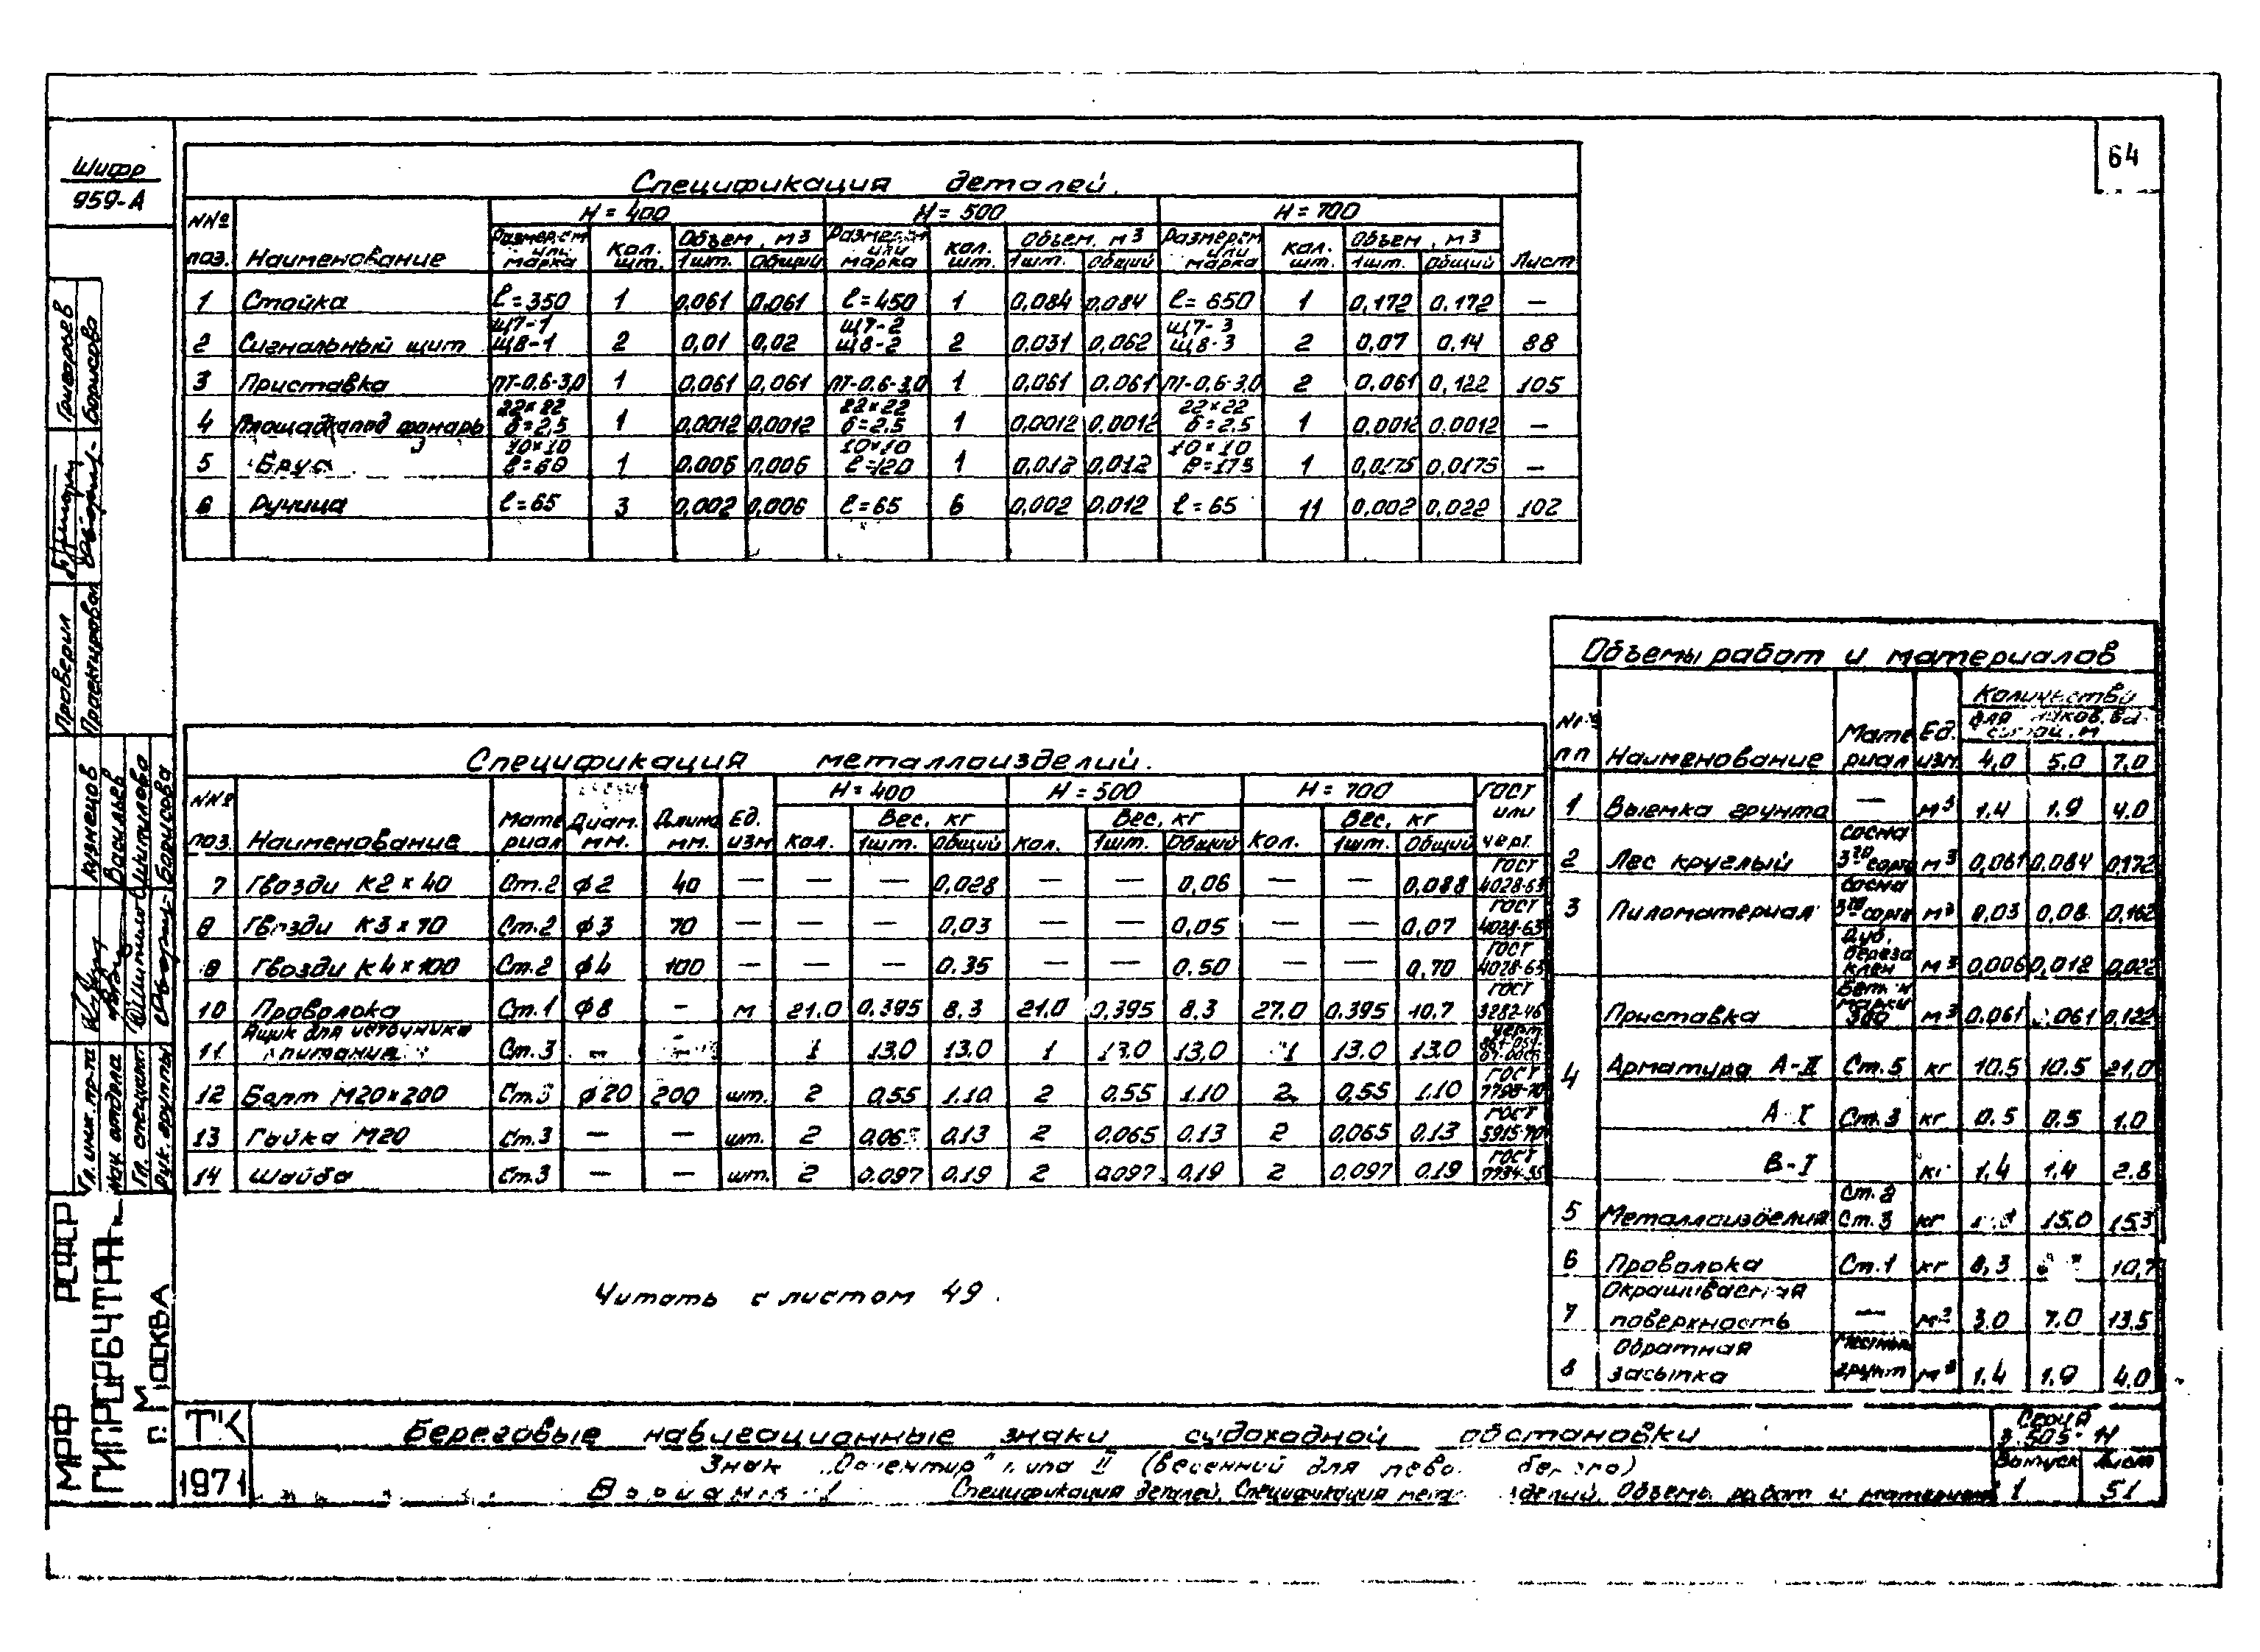 64
Шифр
959-А
Спецификация деталей.
NNº поз. Наименование H=400 H=500 H=700 Лист
Размер см или марка Кол. шт. Объем, м3 1шт. Общий Размер см или марка Кол. шт. Объем, м3 1шт. Общий Размер см или марка Кол. шт. Объем, м3 1шт. Общий
1 Стойка ℓ=350 1 0,061 0,061 ℓ=450 1 0,084 0,084 ℓ=650 1 0,172 0,172 —
2 Сигнальный щит Щ7-1 Щ8-1 2 0,01 0,02 Щ7-2 Щ8-2 2 0,031 0,062 Щ7-3 Щ8-3 2 0,07 0,14 88
3 Приставка ПТ-0.6-3,0 1 0,061 0,061 ПТ-0.6-3,0 1 0,061 0,061 ПТ-0,6-3,0 2 0,061 0,122 105
4 Площадка под фонарь 22×22 δ=2,5 1 0,0012 0,0012 22×22 δ=2,5 1 0,0012 0,0012 22×22 δ=2,5 1 0,0012 0.0012 —
5 Брус 10×10 ℓ=60 1 0,006 0,006 10×10 ℓ=120 1 0,012 0,012 10×10 ℓ=175 1 0,0175 0,0175 —
6 Ручица ℓ=65 3 0,002 0,006 ℓ=65 6 0,002 0,012 ℓ=65 11 0,002 0,022 102
Спецификация металлоизделий.
NNº поз. Наименование Материал Диам. мм. Длина мм. Ед. изм H=400 H=500 H=700 ГОСТ или черт.
Кол. Вес, кг 1шт. Общий Кол. Вес, кг 1шт. Общий Кол. Вес, кг 1шт. Общий
7 Гвозди К2×40 Ст.2 ф2 40 — — — 0,028 — — 0,06 — — 0,088 ГОСТ 4028-63
8 Гвозди К3×70 Ст.2 ф3 70 — — — 0,03 — — 0,05 — — 0,07 ГОСТ 4028-63
9 Гвозди К4×100 Ст.2 ф4 100 — — — 0.35 — — 0.50 — — 0,70 ГОСТ 4028-63
10 Проволока Ст.1 ф8 — м 21.0 0.395 8,3 21.0 0,395 8,3 27.0 0.395 10,7 ГОСТ 3282-46
11 Ящик для источника питания Ст.3 — — 1 13.0 13.0 1 13.0 13,0 1 13.0 13.0 черт.
12 Болт М20×200 Ст.3 ф20 200 шт. 2 0,55 1.10 2 0.55 1.10 2 0,55 1.10 ГОСТ 7798-70
13 Гайка М20 Ст.3 — — шт. 2 0,065 0,13 2 0,065 0.13 2 0,065 0.13 ГОСТ 5915-70
14 Шайба Ст.3 — — шт. 2 0.097 0,19 2 0.097 0,19 2 0.097 0.19 ГОСТ
Объемы работ и материалов
NNº пп Наименование Материал Ед. изм Количество для знаков высотой, м
4,0 5.0 7.0
1 Выемка грунта — м3 1.4 1.9 4.0
2 Лес круглый сосна 3го сорта м3 0,061 0,084 0,172
3 Пиломатериал сосна 3го сорта м3 0,03 0,08 0,162
Дуб, береза клен м3 0,006 0,012 0,022
4 Приставка Бетон марки 300 м3 0.061 0,061 0,122
Арматура А-II Ст.5 кг 10.5 10.5 21.0
А-I Ст.3 кг 0.5 0.5 1.0
В-I кг 1.4 1.4 2.8
5 Металлоизделия Ст.2 Ст.3 кг 15.0 15.3
6 Проволока Ст.1 кг 8,3 10,7
7 Окрашиваемая поверхность — м2 3.0 7.0 13,5
8 Обратная засыпка Местный грунт м3 1.4 1.9 4.0
Читать с листом 49.
Григорьев
Борисова
Проверил
Проектировал
Кузнецов
Васильев
Шипилова
Борисова
Гл. инж. пр-та
Нач. отдела
Гл. специалист
Рук. группы
МРФ РСФСР
ГИПРОРЕЧТРАНС
г. МОСКВА
ТК
1971
Береговые навигационные знаки судоходной обстановки
Знак "Ориентир" типа II (весенний для левого берега)
Вариант 1 Спецификация деталей. Спецификация металлоизделий. Объемы работ и материалов
Серия
3.505-
Выпуск Лист
1 51